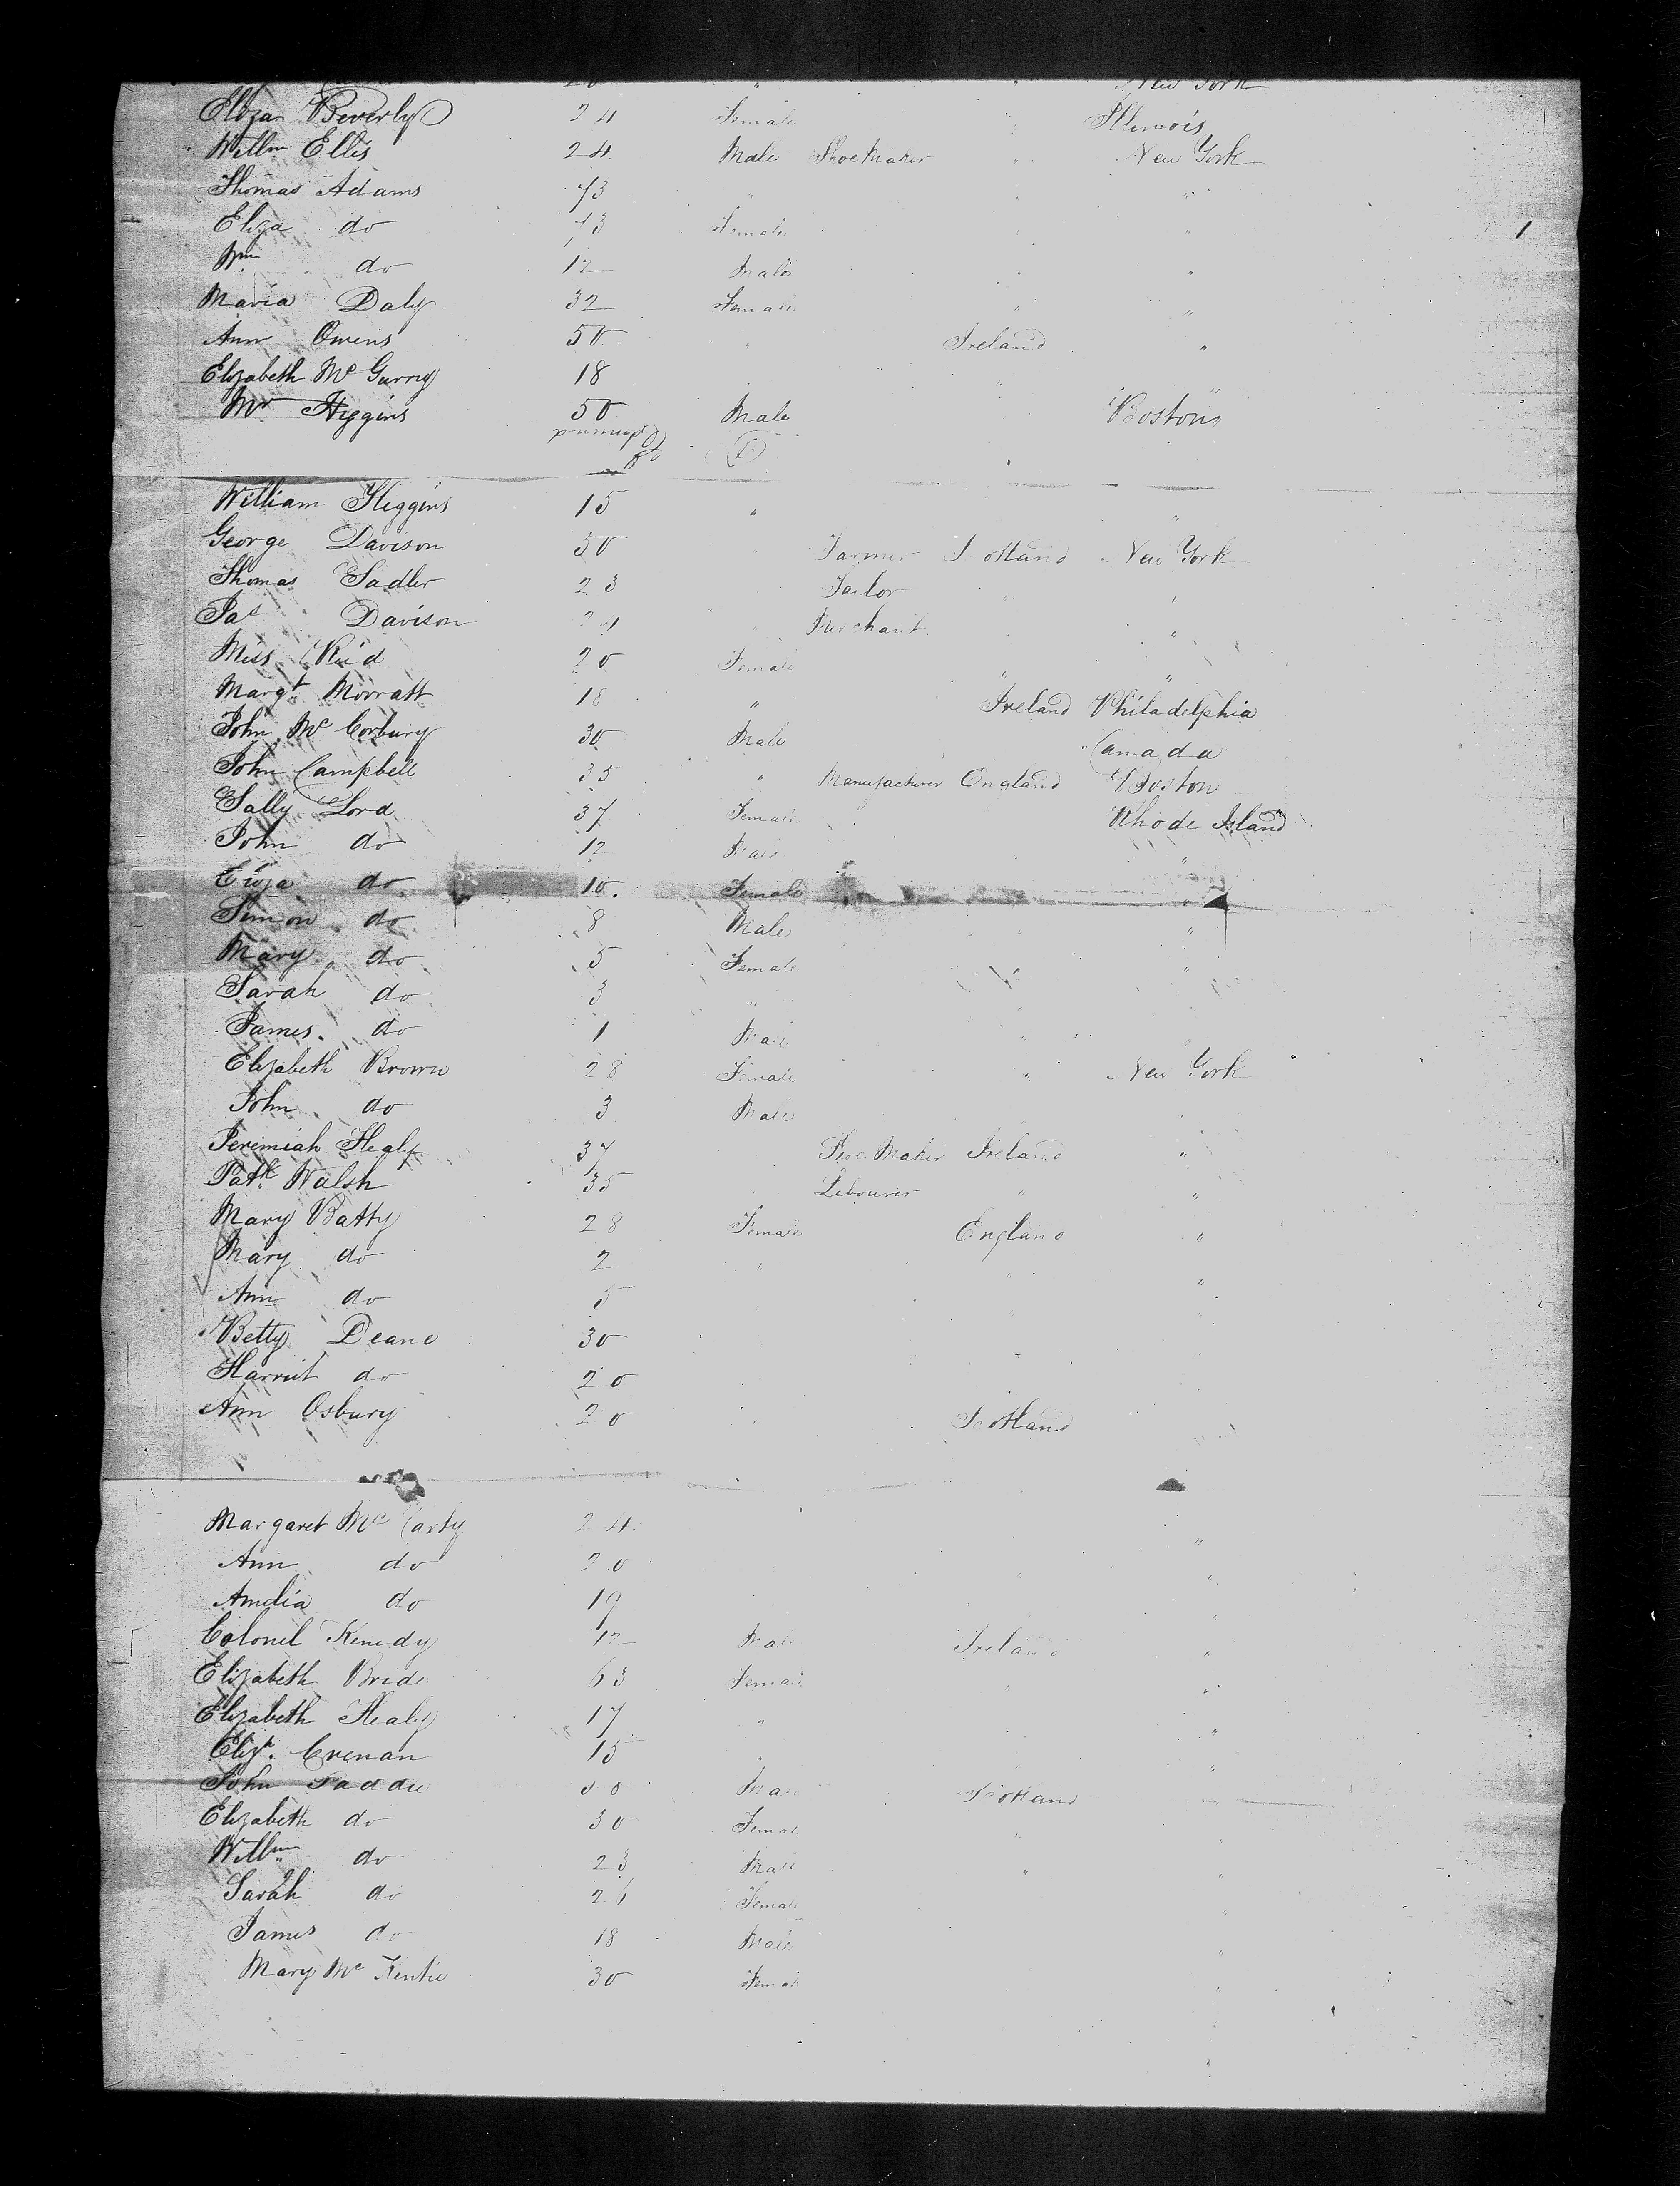 New York
Eliza Beverly 24 Female " Illinois
Willm Ellis 24 Male Shoe Maker " New York
Thomas Adams 43 "
Eliza do 43 Female "
Wm do 12 Male " "
Maria Daly 32 Female " "
Ann Owens 50 " Ireland "
Elizabeth Mc Gurry 18 " "
Mr Higgins 50 Male Boston
William Higgins 15 " "
George Davison 50 Farmer Scotland New York
Thomas Sadler 23 Tailor " "
Jas Davison 24 Merchant "
Miss Reid 20 Female " "
Margt Morratt 18 " Ireland Philadelphia
John Mc Corbury 30 Male Canada
John Campbell 35 " Manufacturer England Boston
Sally Lord 37 Female Rhode Island
John do 12 Male "
Eliza do 10 Female "
Simon do 8 Male " "
Mary do 5 Female "
Sarah do 3 "
James do 1 Male "
Elizabeth Brown 28 Female " New York
John do 3 Male
Jeremiah Healy 37 Shoe Maker Ireland "
Patk Walsh 35 Labourer " "
Mary Batty 28 Female England "
Mary do 2 " " "
Ann do 5
Betty Deane 30
Harriet do 20
Ann Osbury 20 Scotland
Margaret Mc Carty 24 "
Ann do 20 "
Amelia do 19 "
Colonel Kenedy 12 Male Ireland "
Elizabeth Bride 63 Female " "
Elizabeth Healy 17 " "
Elizh Crenan 15 " "
John Faddie Male Scotland
Elizabeth do 30 Female "
Willm do 23 Male " "
Sarah do 21 Female "
James do 18 Male "
Mary Mc 30 Female "